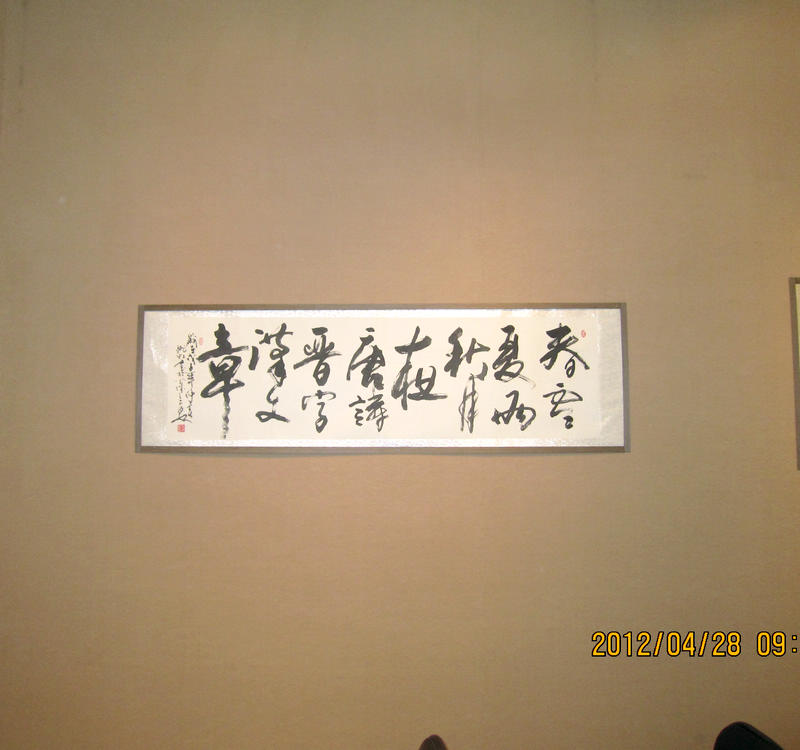 春雲
夏雨
秋月
唐詩
晋字
漢文
章
2012/04/28 09: